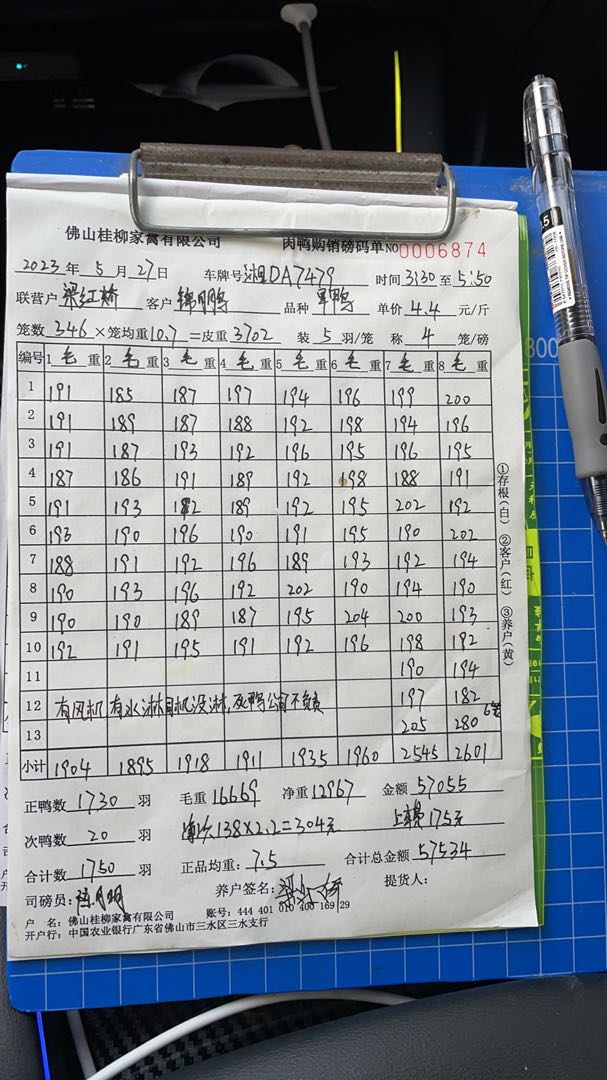 佛山桂柳家禽有限公司 肉鸭购销磅码单 NO 0006874
2023年 5月 27日 车牌号 湘DA7479 时间 3:30 至 5:50
联营户 梁红桥 客户 锦明鸭 品种 单价 4.4 元/斤
笼数 346 ×笼均重 10.7 =皮重 3702 装 5 羽/笼 称 4 笼/磅
编号 1 毛重 2 毛重 3 毛重 4 毛重 5 毛重 6 毛重 7 毛重 8 毛重
1 191 185 187 197 194 196 199 200
2 191 189 187 188 192 198 194 196
3 191 187 193 192 196 195 196 195
4 187 186 191 189 192 198 188 191
5 191 193 192 189 192 195 202 192
6 193 190 196 190 191 195 190 202
7 188 191 192 196 189 193 192 194
8 190 193 196 192 202 190 194 190
9 190 190 189 187 195 204 200 193
10 192 191 195 191 192 196 198 192
11 190 194
12 有风机有水淋 司机没淋,死鸭公司不负责 197 182
13 205 280 6笼
小计 1904 1895 1918 1911 1935 1960 2545 2601
正鸭数 1730 羽 毛重 16669 净重 12967 金额 57055
次鸭数 20 羽 138×2.2=304元 上车费175元
合计数 1750 羽 正品均重: 7.5 合计总金额 57534
司磅员: 养户签名: 提货人:
户 名: 佛山桂柳家禽有限公司 账号: 444 401 010 400 169 29
开户行: 中国农业银行广东省佛山市三水区三水支行
①存根(白) ②客户(红) ③养户(黄)